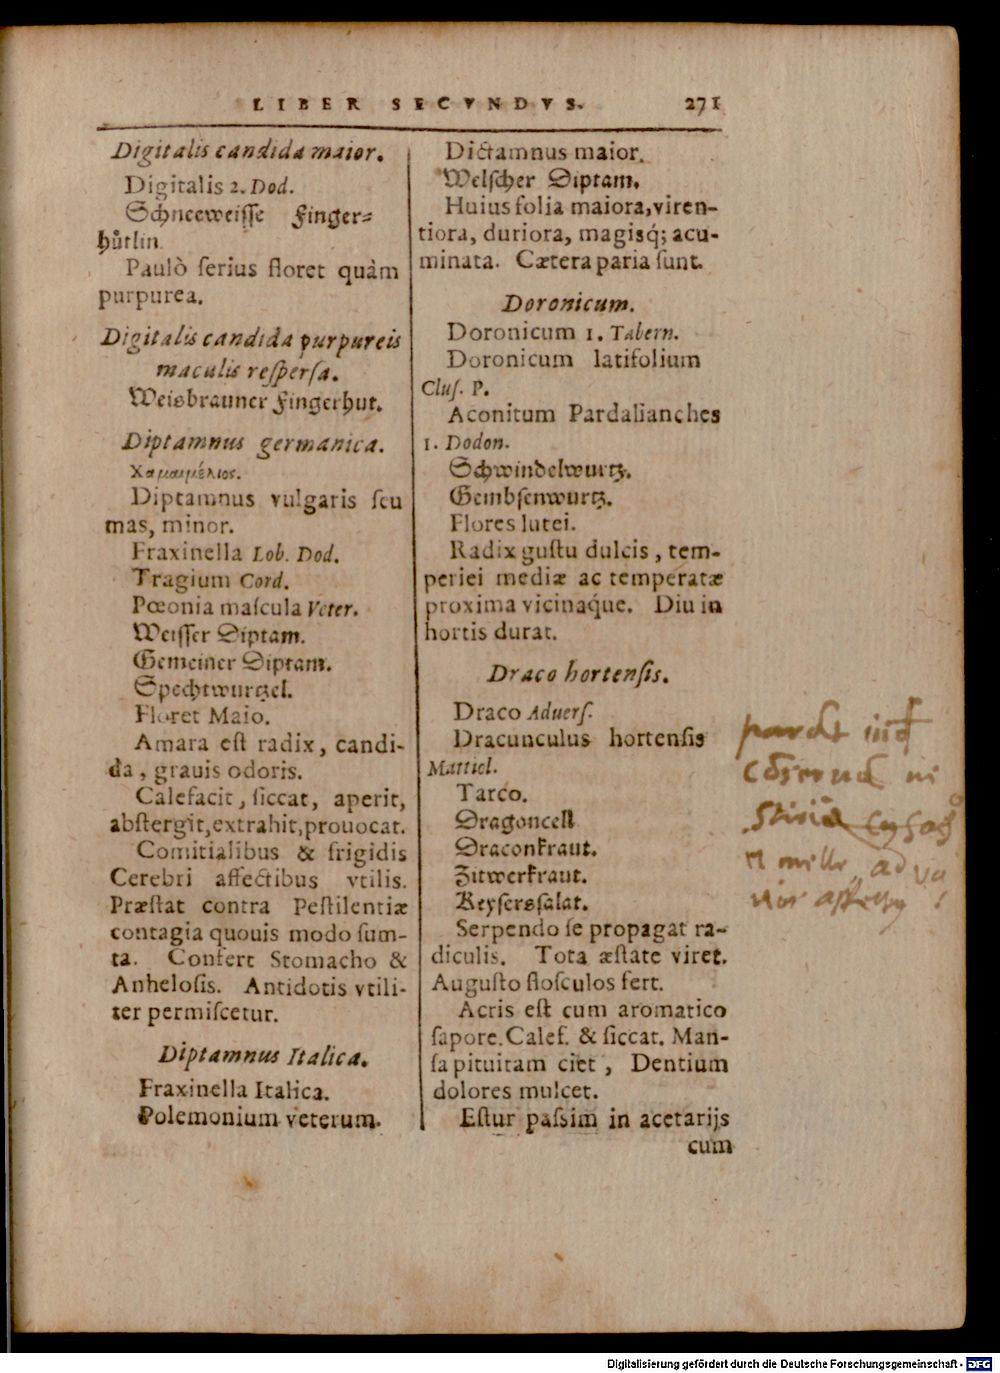 LIBER SECVNDVS. 271
Digitalis candida maior.
Digitalis 2. Dod.
Schneeweisse Finger⸗
hůtlin
Paulò ſerius floret quàm
purpurea.
Digitalis candida purpureis
maculis reſperſa.
Weisbrauner Fingerhut.
Diptamnus germanica.
Χαμαιμέλιος.
Diptamnus vulgaris ſeu
mas, minor.
Fraxinella Lob. Dod.
Tragium Cord.
Pœonia maſcula Veter.
Weiſſer Diptam.
Gemeiner Diptam.
Spechtwurtzel.
Floret Maio.
Amara eſt radix, candi-
da, grauis odoris.
Calefacit, ſiccat, aperit,
abſtergit, extrahit, prouocat.
Comitialibus & frigidis
Cerebri affectibus vtilis.
Præſtat contra Peſtilentiæ
contagia quouis modo ſum-
ta. Confert Stomacho &
Anheloſis. Antidotis vtili-
ter permiſcetur.
Diptamnus Italica.
Fraxinella Italica.
Polemonium veterum.
Dictamnus maior.
Welſcher Diptam.
Huius folia maiora, viren-
tiora, duriora, magisq́; acu-
minata. Cætera paria ſunt.
Doronicum.
Doronicum 1. Tabern.
Doronicum latifolium
Cluſ. P.
Aconitum Pardalianches
1. Dodon.
Schwindelwurtz.
Gembſenwurtz.
Flores lutei.
Radix guſtu dulcis, tem-
periei mediæ ac temperatæ
proxima vicinaq́ue. Diu in
hortis durat.
Draco hortenſis.
Draco Aduerſ.
Dracunculus hortenſis
Mattiol.
Tarco.
Dragoncell
Draconkraut.
Zitwerkraut.
Keyſersſalat.
Serpendo ſe propagat ra-
diculis. Tota æſtate viret.
Auguſto floſculos fert.
Acris eſt cum aromatico
ſapore. Calef. & ſiccat. Man-
ſa pituitam ciet, Dentium
dolores mulcet.
Eſtur paſsim in acetarijs
cum
Digitalisierung gefördert durch die Deutsche Forschungsgemeinschaft - DFG